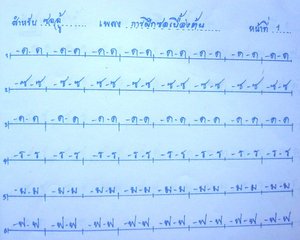 สำหรับ ซออู้ เพลง การฝึกซอเบื้องต้น หน้าที่ 1
1 -ด-ด | -ด-ด | -ด-ด | -ด-ด | -ด-ด | -ด-ด | -ด-ด | -ด-ด
2 -ซ-ซ | -ซ-ซ | -ซ-ซ | -ซ-ซ | -ซ-ซ | -ซ-ซ | -ซ-ซ | -ซ-ซ
3 -ด-ด | -ด-ด | -ด-ด | -ด-ด | -ด-ด | -ด-ด | -ด-ด | -ด-ด
4 -ร-ร | -ร-ร | -ร-ร | -ร-ร | -ร-ร | -ร-ร | -ร-ร | -ร-ร
5 -ม-ม | -ม-ม | -ม-ม | -ม-ม | -ม-ม | -ม-ม | -ม-ม | -ม-ม
6 -ฟ-ฟ | -ฟ-ฟ | -ฟ-ฟ | -ฟ-ฟ | -ฟ-ฟ | -ฟ-ฟ | -ฟ-ฟ | -ฟ-ฟ